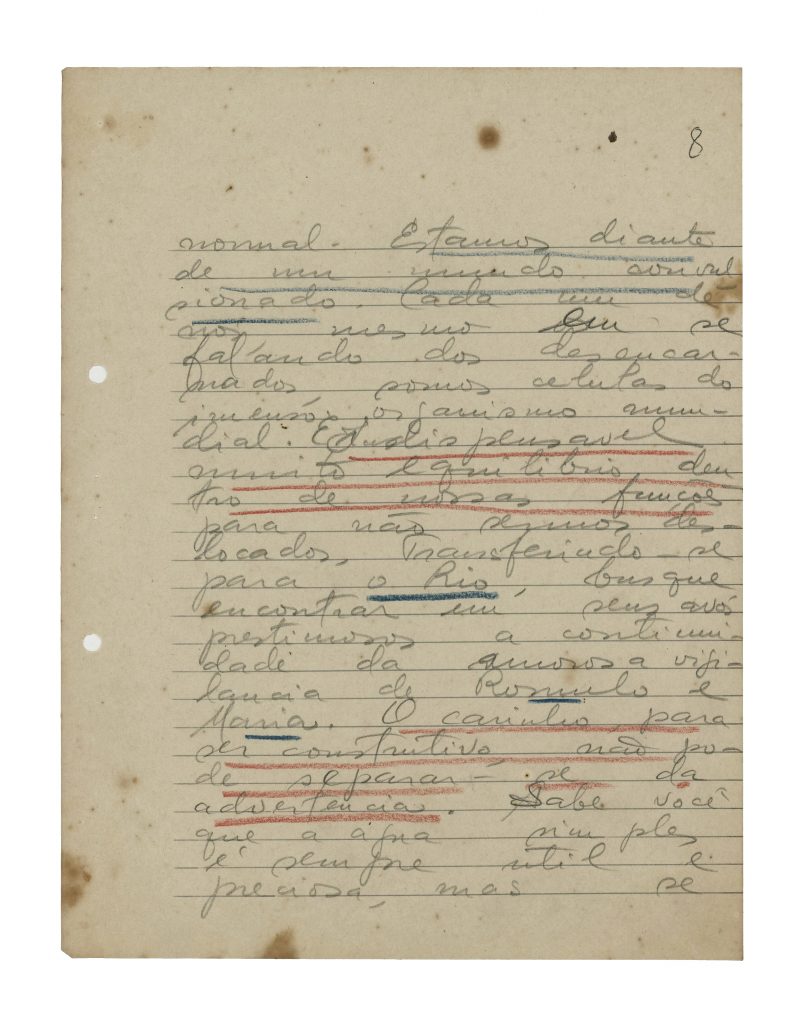 8
normal. Estamos diante
de um mundo convul
sionado. Cada um de
nós mesmo em se
falando dos desencar-
nados, somos celulas do
imenso organismo mun-
dial. É indispensavel
muito equilibrio den
tro de nossas funcões
para não sermos des-
locados. Transferindo-se
para o Rio, busque
encontrar em seus avós
prestimosos a continui-
dade da amorosa vigi-
lancia de Romulo e
Maria. O carinho, para
ser construtivo não po-
de separar-se da
advertencia. Sabe você
que a agua simples
é sempre util e
preciosa, mas se